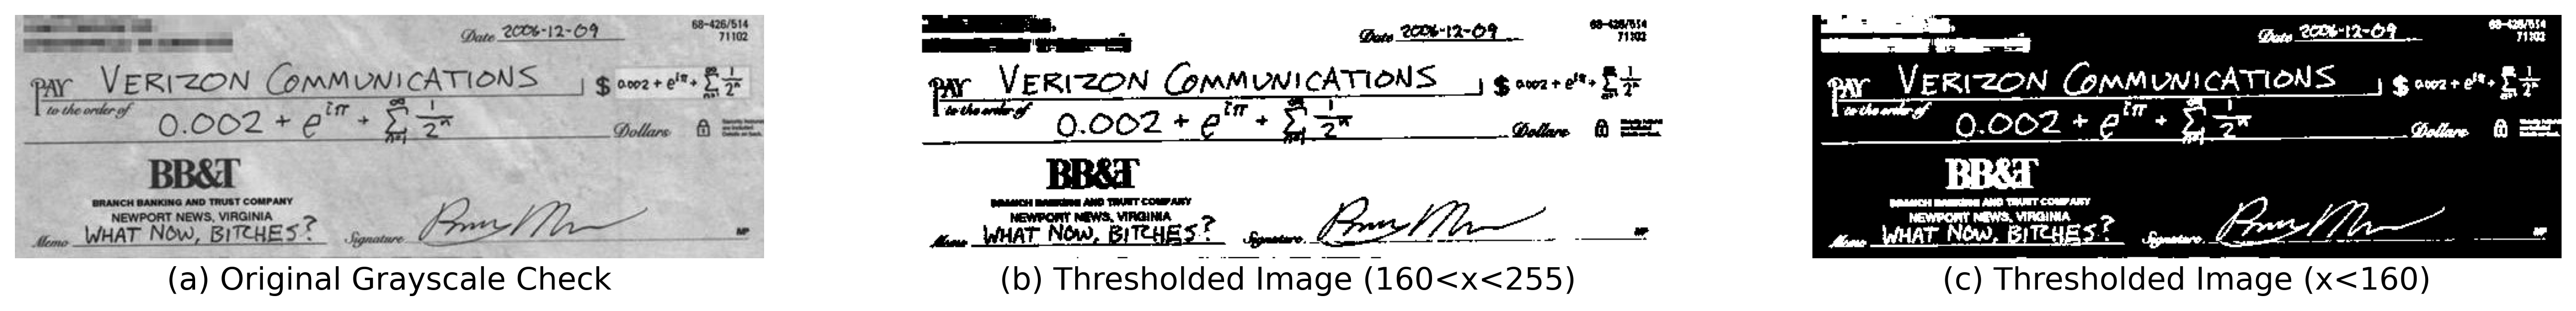 Date 2006-12-09
68-426/514
71102
PAY VERIZON COMMUNICATIONS $ 0.002 + e^iπ + ∞ Σ n=1 1/2^n
to the order of
0.002 + e^iπ + ∞ Σ n=1 1/2^n Dollars
BB&T
BRANCH BANKING AND TRUST COMPANY
NEWPORT NEWS, VIRGINIA
Memo WHAT NOW, BITCHES? Signature MP
(a) Original Grayscale Check
Date 2006-12-09
68-426/514
71102
PAY VERIZON COMMUNICATIONS $ 0.002 + e^iπ + ∞ Σ n=1 1/2^n
to the order of
0.002 + e^iπ + ∞ Σ n=1 1/2^n Dollars
BB&T
BRANCH BANKING AND TRUST COMPANY
NEWPORT NEWS, VIRGINIA
Memo WHAT NOW, BITCHES? Signature
(b) Thresholded Image (160<x<255)
Date 2006-12-09
68-426/514
71102
PAY VERIZON COMMUNICATIONS $ 0.002 + e^iπ + ∞ Σ n=1 1/2^n
to the order of
0.002 + e^iπ + ∞ Σ n=1 1/2^n Dollars
BB&T
BRANCH BANKING AND TRUST COMPANY
NEWPORT NEWS, VIRGINIA
Memo WHAT NOW, BITCHES? Signature
(c) Thresholded Image (x<160)